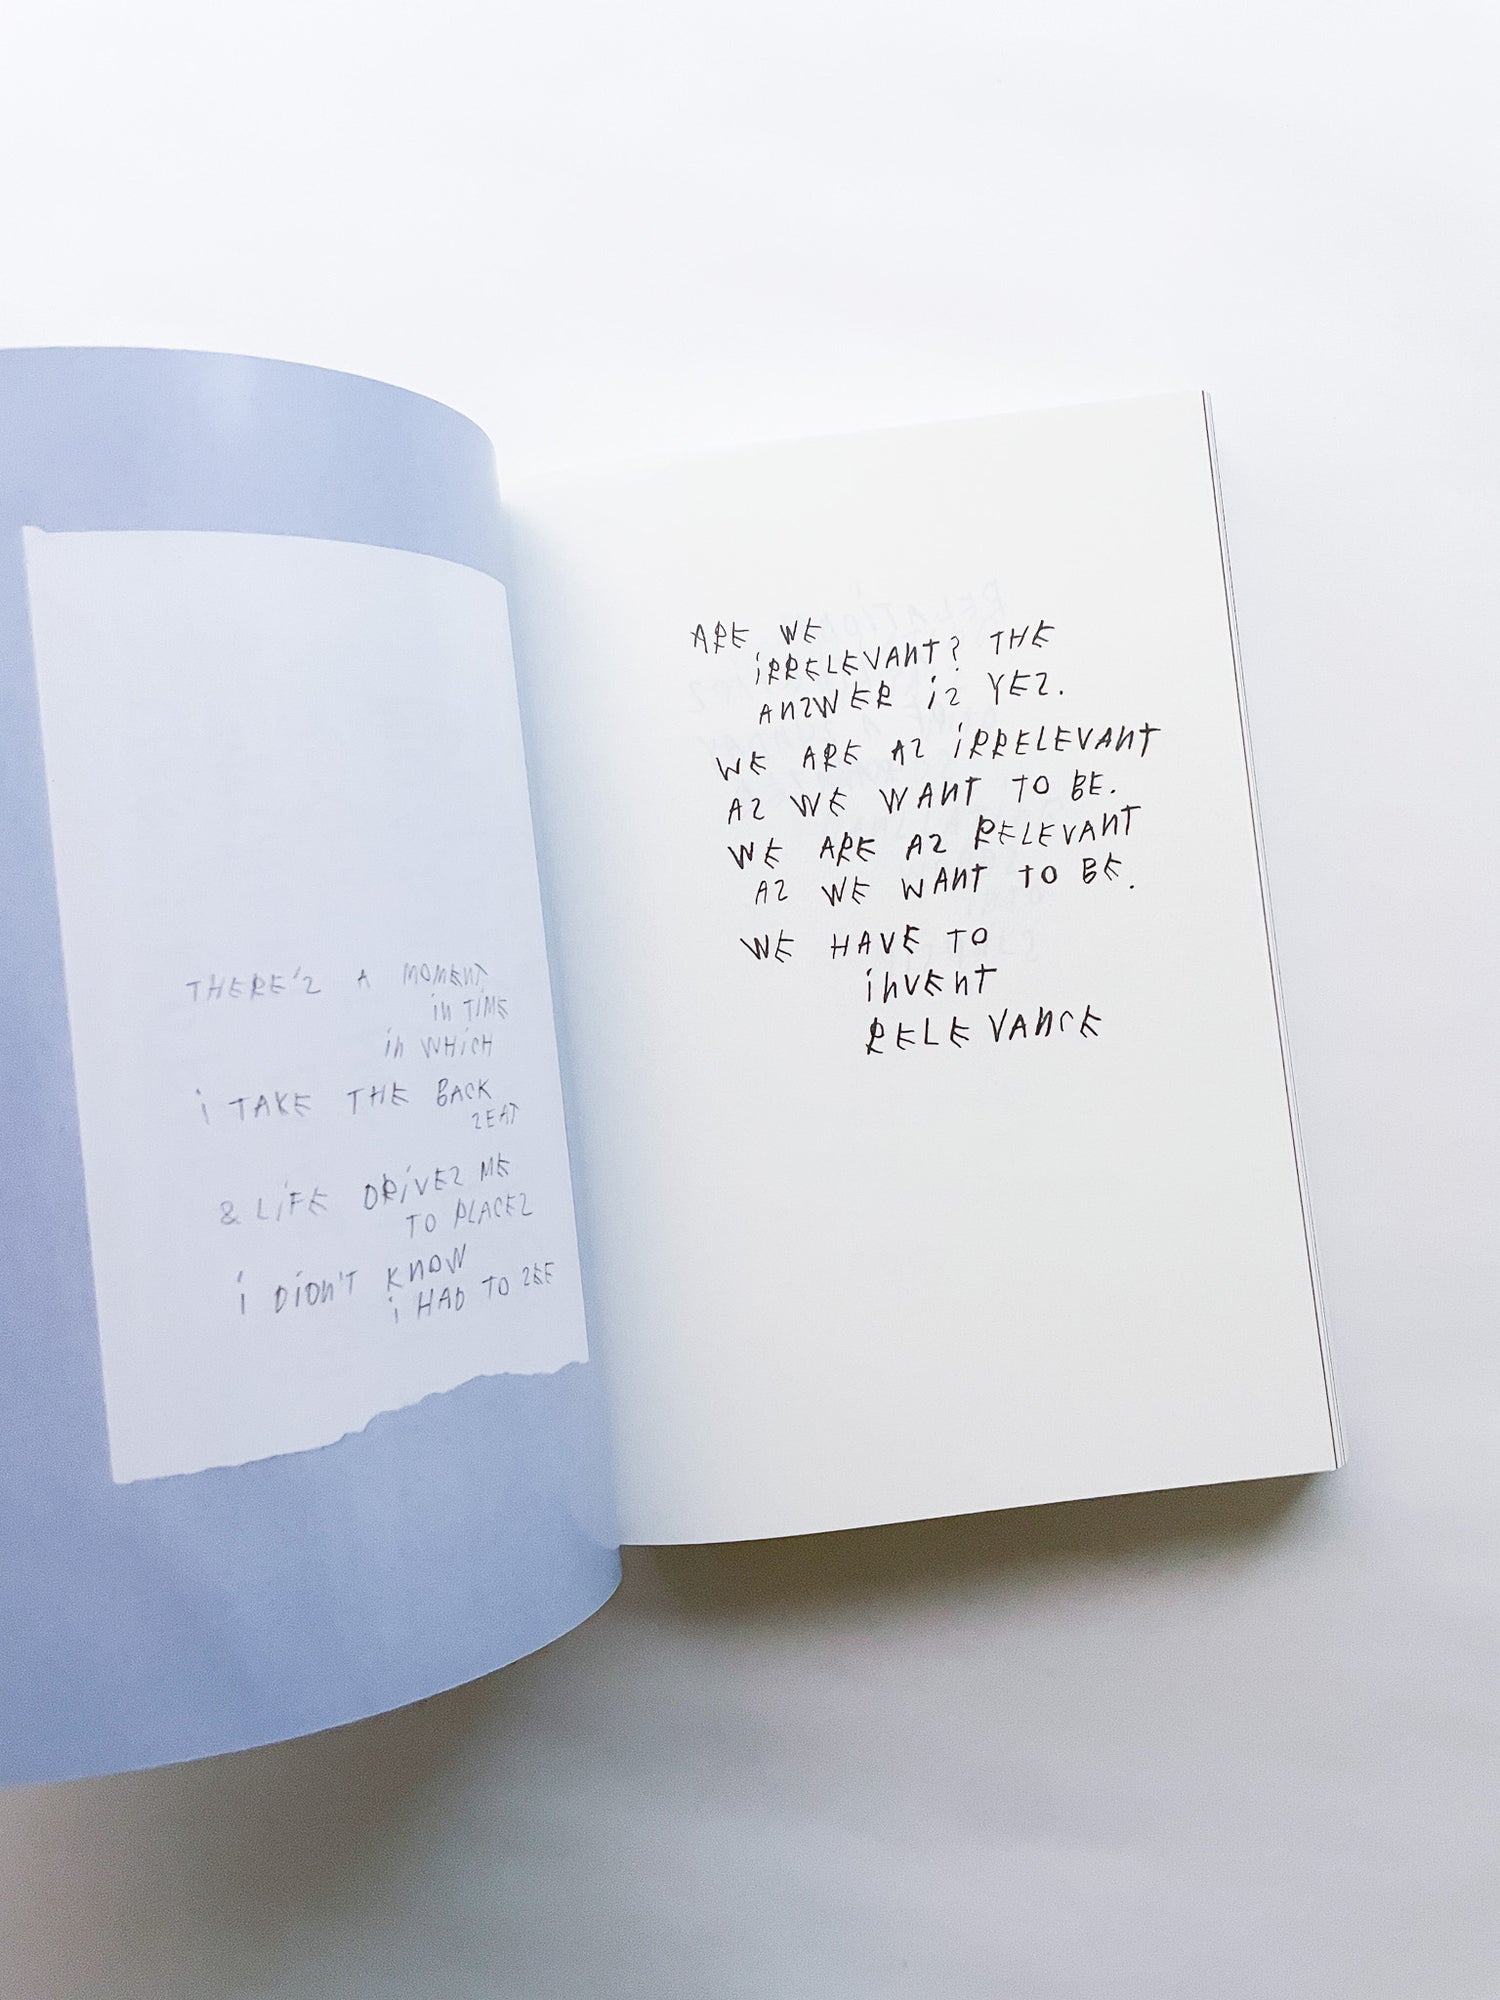 THERE'S A MOMENT
in TIME
in WHiCH
i TAKE THE BACK
SEAT
& LiFE DRiVES ME
TO PLACES
i DiDn'T KNOW
i HAD TO SEE
ARE WE
iRRELEVANT? THE
ANSWER iS YES.
WE ARE AS iRRELEVANT
AS WE WANT TO BE.
WE ARE AS RELEVANT
AS WE WANT TO BE.
WE HAVE TO
inVEnT
RELEVANCE